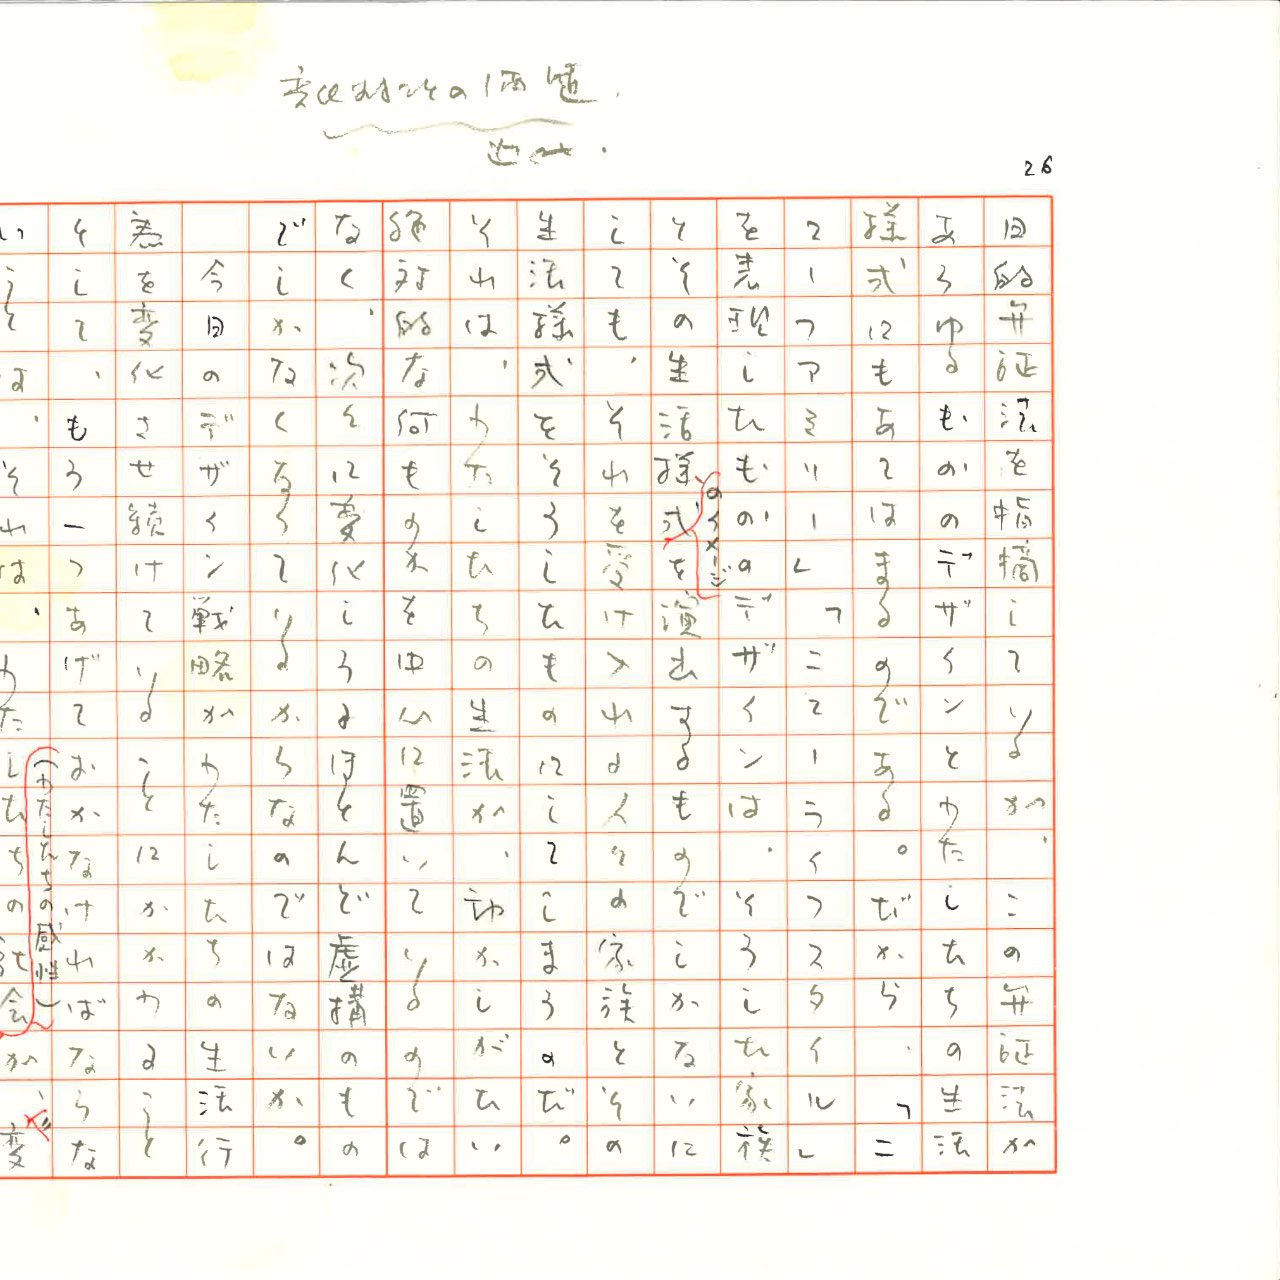 変化することの価値
26
目的弁証法を指摘しているが、この弁証法が
あらゆるものデザインとわたしたちの生活
様式にもあてはまるのである。だから、「ニ
ューファミリー」「ニューライフスタイル」
を表現したもののデザインは、そうした家族
とその生活様式のイメージを演出するものでしかないに
して も、それを受け入れる人々の家族とその
生活様式をそうしたものにしてしまうのだ。
それは、わたしたちの生活が、動かしがたい
絶対的な何ものかを中心に置いているのでは
なく、次々に変化しうるほとんど虚構のもの
でしかなくなっているからなのではないか。
今日のデザイン戦略がわたしたちの生活行
為を変化させ続けていることにかかわること
として、もう一つあげておかなければならな
いことは、それは、わたしたちの社会が
(わたしたちの感性)
変